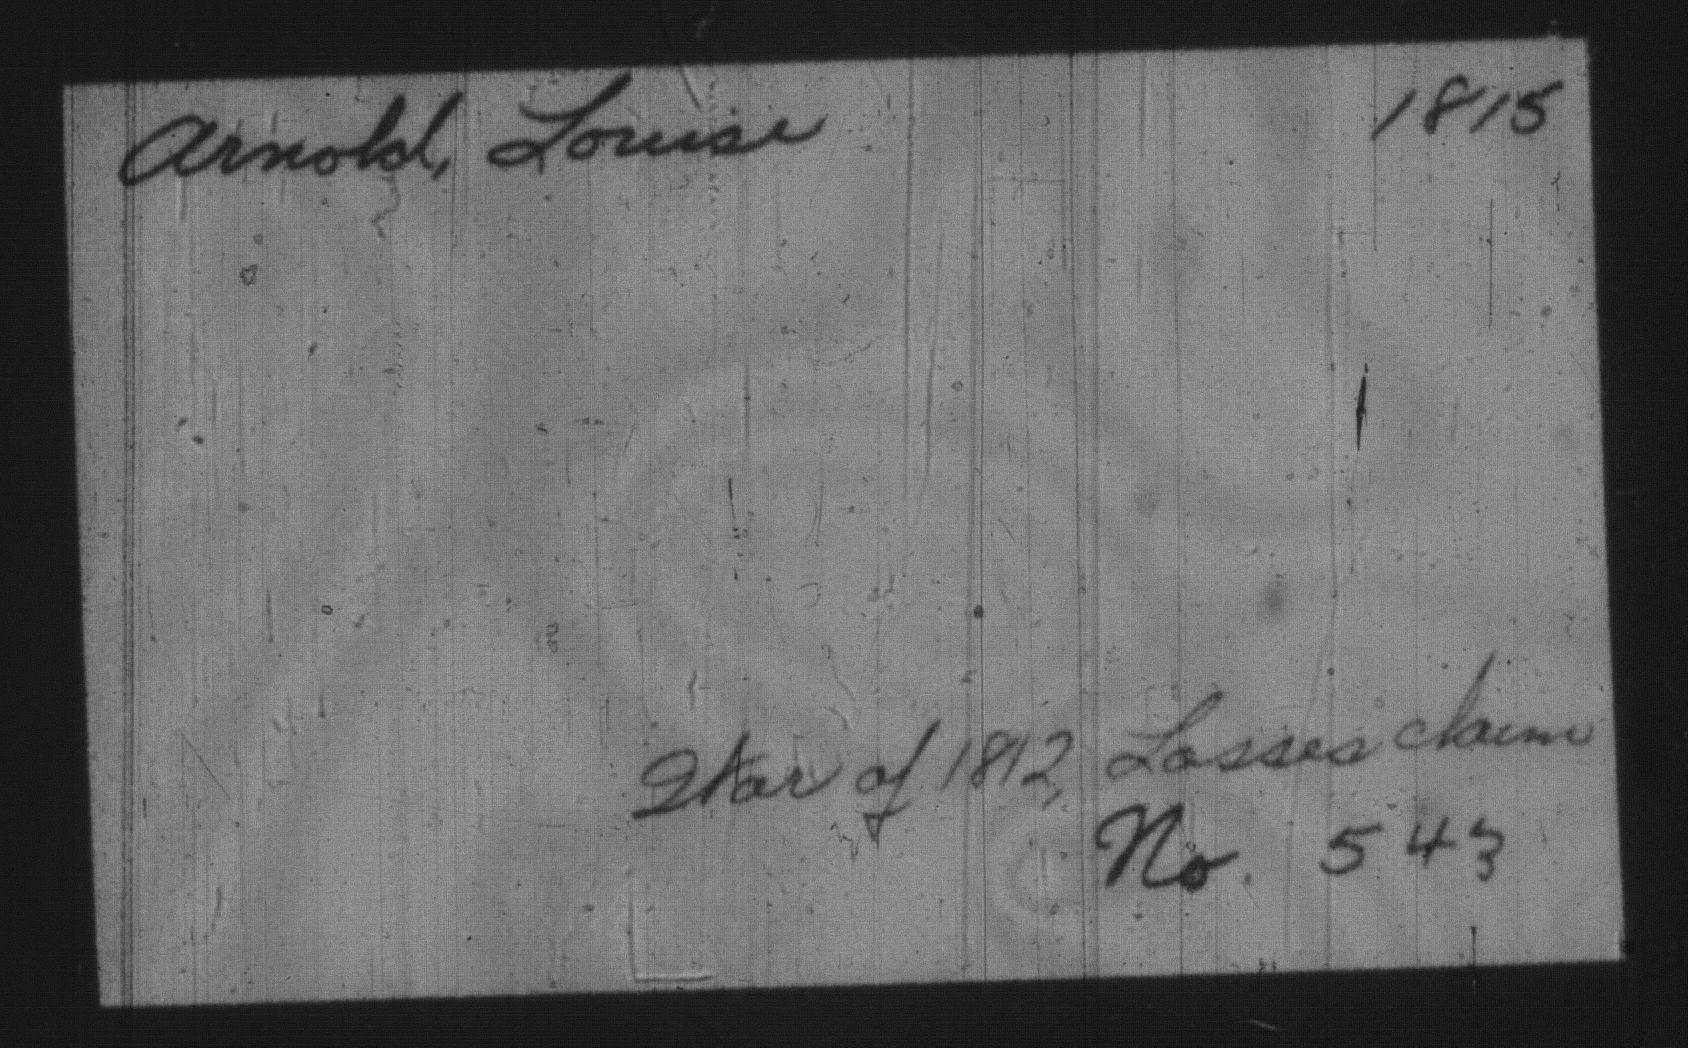 Arnold, Louise 1815
War of 1812, Losses claim
No. 543